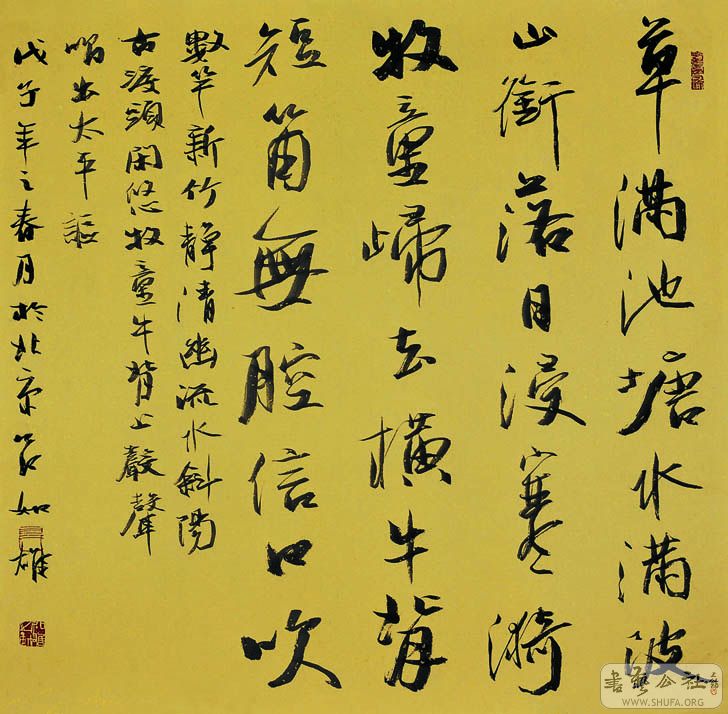 草满池塘水满陂
山衔落日浸寒漪
牧童归去横牛背
短笛无腔信口吹
数竿新竹静清幽流水斜阳
古渡头闲悠牧童牛背上声声
唱出太平讴
戊子年之春月于北京 如雄
書藝公社
WWW.SHUFA.ORG